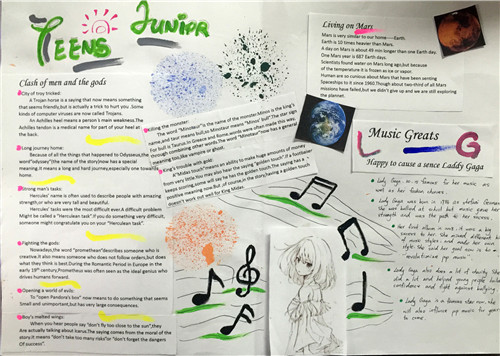 TEENS JUNIOR
Clash of men and the gods
City of troy tricked:
A Trojan horse is a saying that now means something
that seems friendly,but is actually a trick to hurt you. Some
kinds of computer viruses are now called Trojans.
An Achilles heel means a person's main weakness.The
Achilles tendon is a medical name for part of your heel at
the back.
Long journey home:
Because of all the things that happened to Odysseus,the
word"odyssey"(the name of the story)now has a special
meaning.It means a long and hard journey,especially one towards
home.
Strong man's tasks:
Hercules' name is often used to describe people with amazing
strength,or who are very tall and beautiful.
Hercules' tasks were the most difficult ever.A difficult problem
Might be called a "Herculean task".If you do something very difficult,
someone might congratulate you on your "Herculean task".
Fighting the gods:
Nowadays,the word "promethean"describes someone who is
creative.It also means someone who does not follow orders,but does
what they think is best.During the Romantic Period in Europe in the
early 19th century,Prometheus was often seen as the ideal genius who
drives humans forward.
Opening a world of evils:
To "open Pandora's box" now means to do something that seems
Small and unimportant,but has very large consequences.
Boy's melted wings:
When you hear people say "don't fly too close to the sun",they
Are actually talking about Icarus.The saying comes from the moral of the
story.It means "don't take too many risks"or"don't forget the dangers
Of success".
Killing the monster:
The word "Minotaur" is the name of the monster.Minos is the king's
name,and taur means bull,so Minotaur means "Minos' bull".The star sign
For bull is Taurus.In Greece and Rome,words were often made this way,
through combining other words.The word "Minotaur"now has a general
meaning too,like vampire or ghost.
King's trouble with gold:
A"Midas touch"means an ability to make huge amounts of money
from very little.You may also hear the saying "golden touch".If a footballer
keeps scoring,some will say he has the golden touch.The saying has a
positive meaning now.But of course,in the story,having a golden touch
doesn't work out well for King Midas.
Living on Mars
Mars is very similar to our home——Earth.
Earth is 10 times heavier than Mars.
A day on Mars is about 49 min longer than one Earth day.
One Mars year is 687 Earth days.
Scientists found water on Mars long ago,but because
of the temperature it is frozen as ice or vapor.
Human are so curious about Mars that have been sending
Spaceships to it since 1960.Though about two-third of all Mars
missions have failed,but we didn't give up and we are still exploring
the planet.
L G
Music Greats
Happy to cause a sence Laddy Gaga
Lady Gaga is a famous for her music as
well as her fashion shows.
Lady Gaga was born in 1986 as
she was bullied at school but music gave her
strength and was the path to her success.
Her first album is out. it was a big
success to her. She mixed different kinds
of music styles and made her own
style. She said her goal now is to
revolutionise pop music.
Lady Gaga also does a lot of charity like
and helped young people build
confidence and fight against bullying.
Lady Gaga is a famous star now, she
will also influence pop music for years
to come.